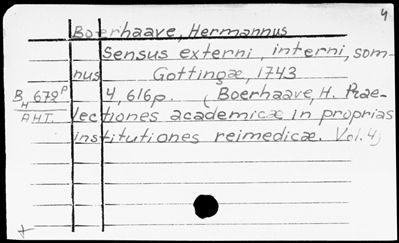 4
Boerhaave, Hermannus
Sensus externi, interni, som-
nus Gottingæ, 1743
BH 672P 4, 616p. (Boerhaave, H. Prae-
AHT. lectiones academicæ in proprias
institutiones reimedicæ. Vol. 4)